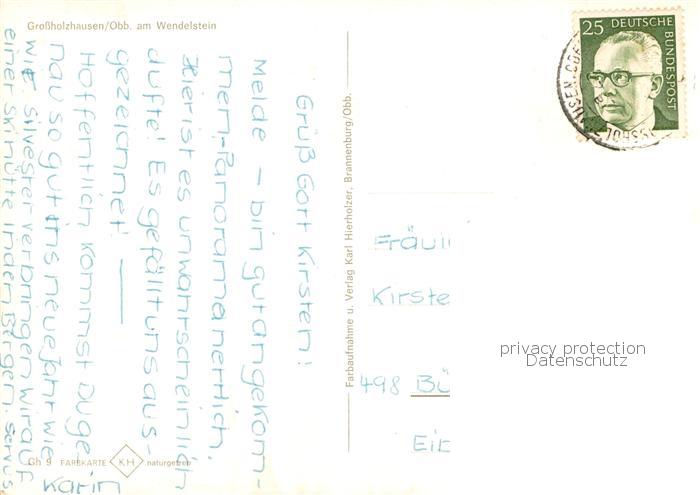 Großholzhausen/Obb. am Wendelstein
Grüß Gott Kirsten!
Melde – bin gut angekom-
men, Panorama herrlich,
Hier ist es unwahrscheinlich
dufte! Es gefällt uns aus-
gezeichnet! —
Hoffentlich kommst Du ge-
nau so gut ins neue Jahr wie
wir. Silvester verbringen wir auf
einer Skihütte in den Bergen. Servus
Karin
Gh 9 FARBKARTE KH naturgetreu
Farbaufnahme u. Verlag Karl Hierholzer, Brannenburg/Obb.
25 DEUTSCHE BUNDESPOST
Fräul
Kirste
498 Bü
Eib
privacy protection
Datenschutz